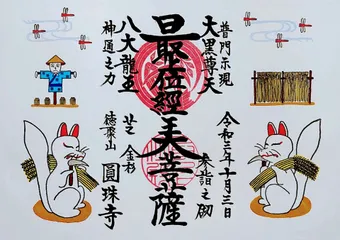 普門示現
大黒尊天
令和三年十月三日
参詣之砌
最位經王大菩薩
八大龍王
神通之力
芝 金杉
德聚山
圓珠寺